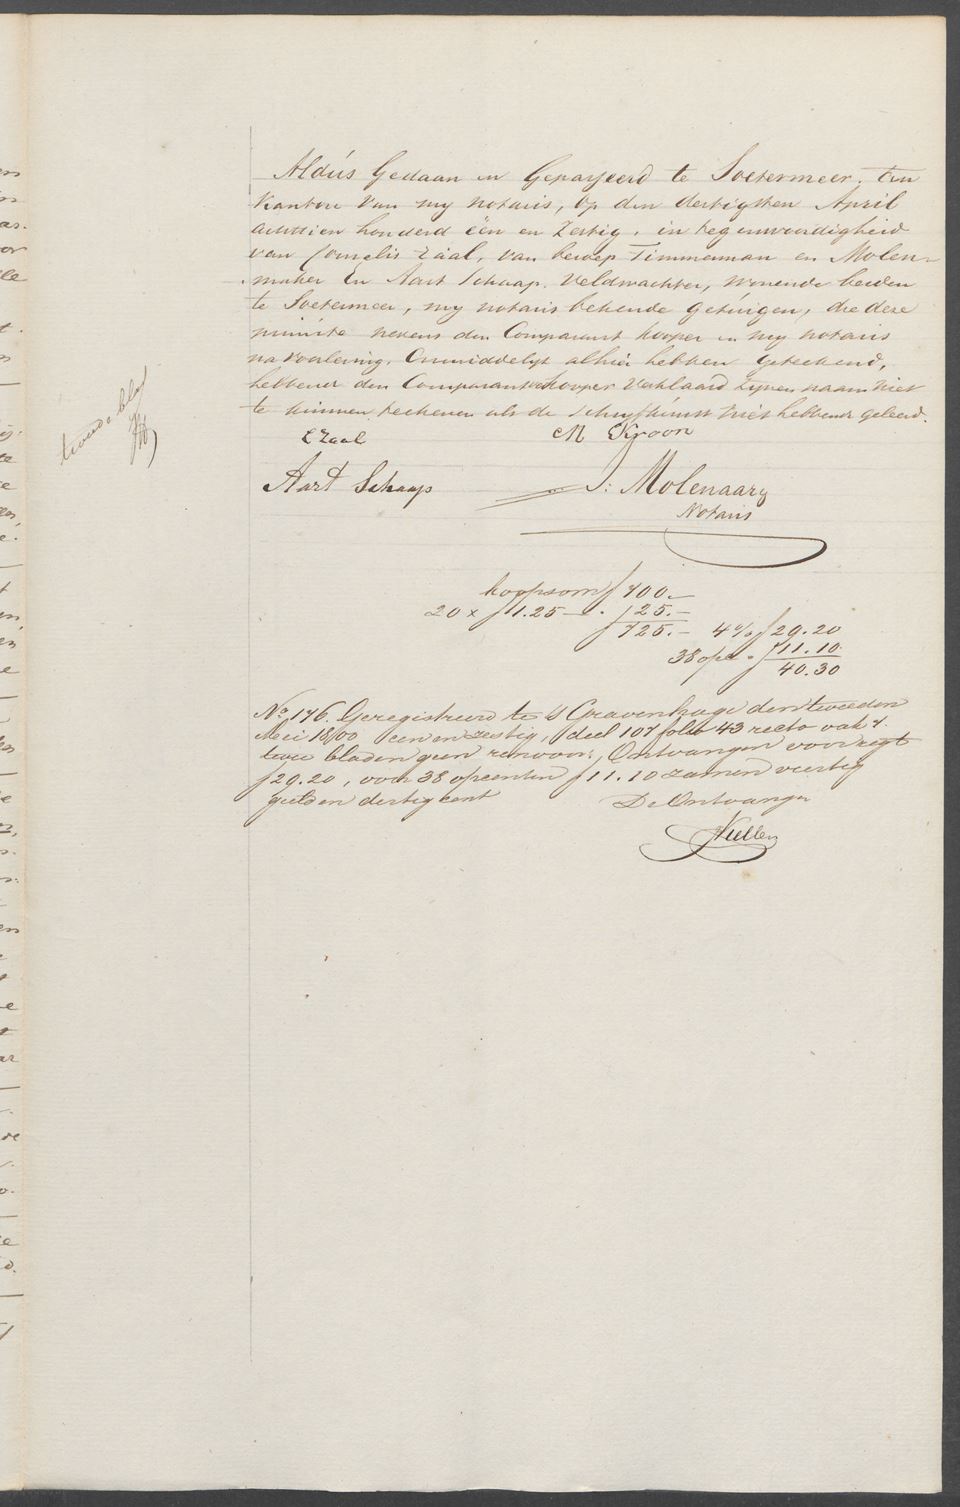 Aldus Gedaan en Gepasseerd te Soetermeer, ten
Kantore van my notaris, op den dertigsten April
achttien honderd een en Zestig, in tegenwoordigheid
van Cornelis Zaal, van beroep Timmerman en Molen-
maker En Aart Schaap, Veldwachter, wonende beiden
te Soetermeer, my notaris bekende getuigen, die deze
minute nevens den Comparant kooper en my notaris
na Voorlezing, Onmiddelyk alhier hebben geteekend,
hebbende den Comparant Verklaard zynen naam niet
te kunnen teekenen als de schryfkunst niet hebbende geleerd.
C Zaal M Kroon
Aart Schaap J: Molenaar
Notaris
tweede blad
koopsom f 700.-
20 x f 1.25 - . f 25.-
f 725.- 4% f 29.20
38 opc " f 11.10
f 40.30
No. 176. Geregistreerd te 's Gravenhage den tweeden
Mei 1800 een en zestig, deel 107 folio 43 recto vak 7
twee bladen geen renvooi, Ontvangen voor regt
f 29.20, voor 38 opcenten f 11.10 zamen veertig
gulden dertig cent De Ontvanger